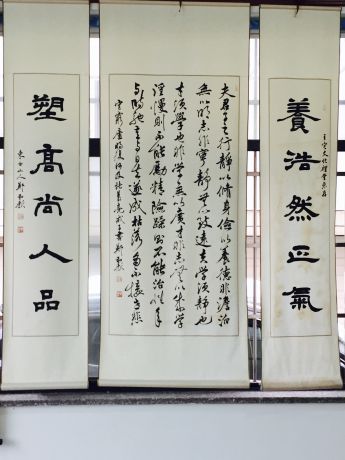 養浩然正氣
文化禮堂惠存
夫君子之行靜以脩身儉以養德非澹泊
無以明志非寧靜無以致遠夫學須靜也
才須學也非學無以廣才非志無以成學
淫慢則不能勵精險躁則不能治性年
与時馳意与日去遂成枯落多不接世悲
守窮廬將復何及諸葛亮誡子書
塑高尚人品
東白山人